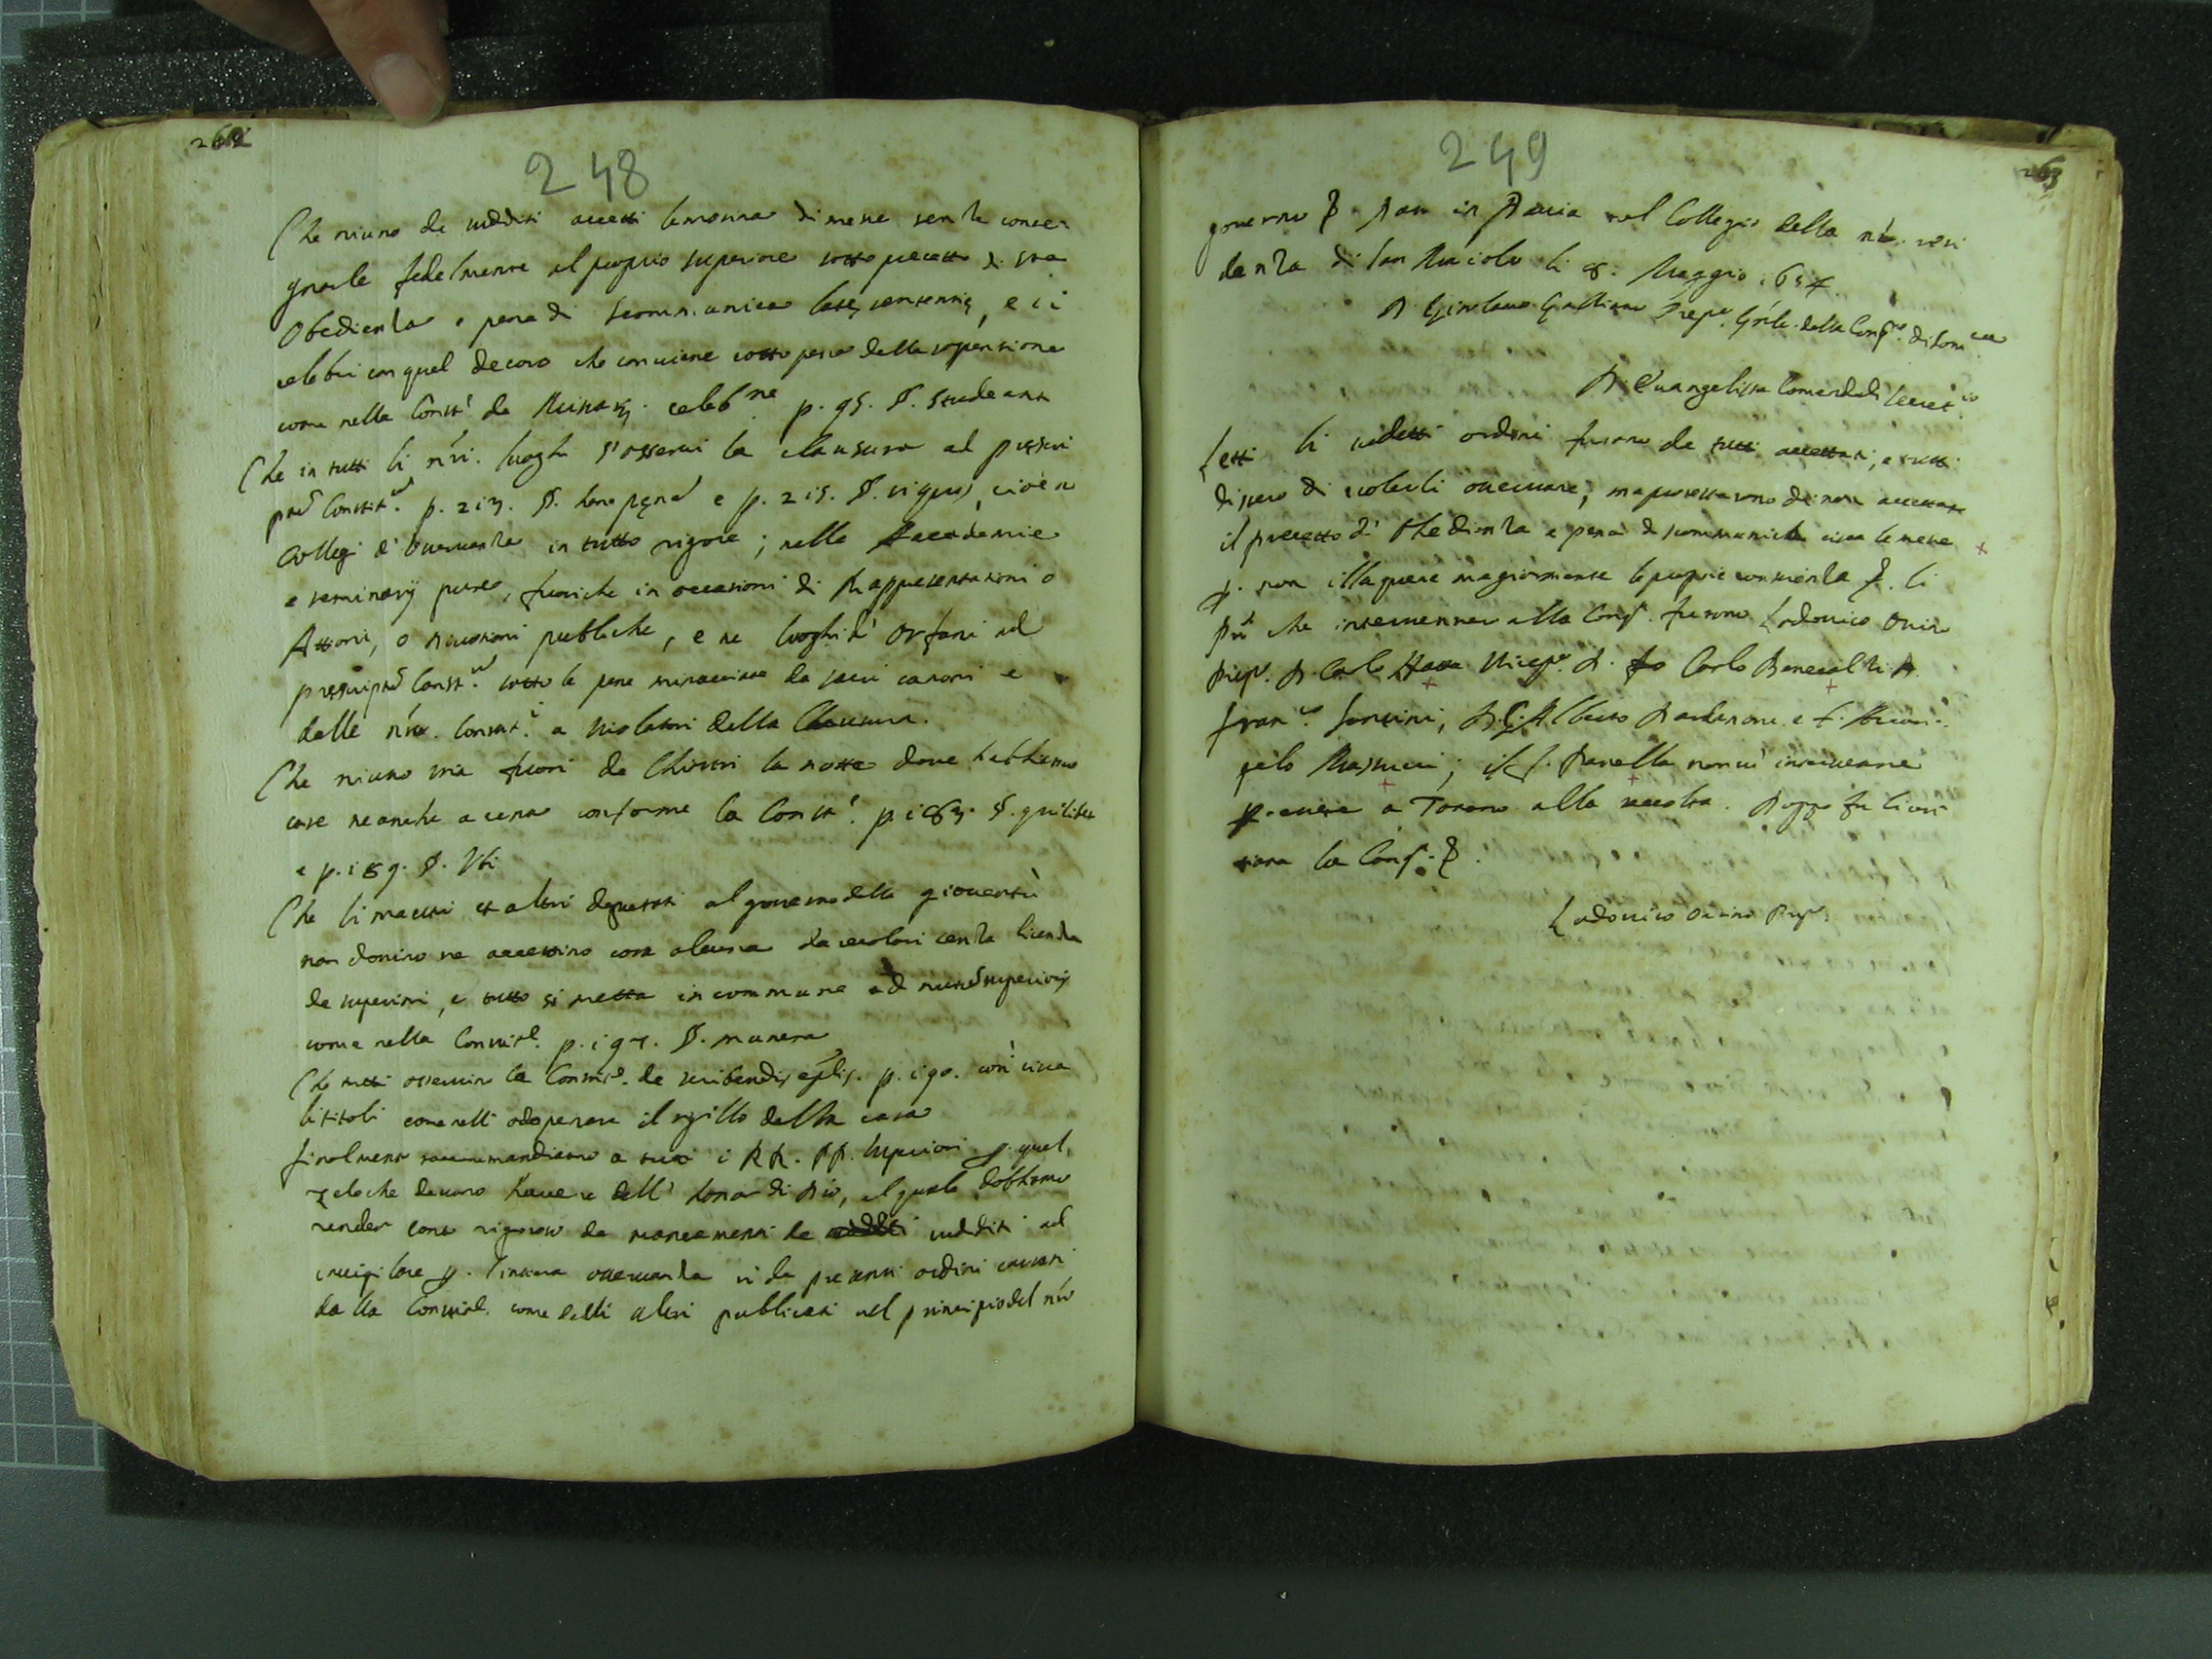 248
Che niuno de sudditi accetti lemosina di messe senza conse-
gnarle fedelmente al proprio superiore sotto precetto di sta
Obedienza e pena di scommunica latę sententię, e si
celebri con quel decoro che conviene sotto pena della sospensione
come nella Constne. de Missarũ. celebne p. 95. §. studeant
Che in tutti li nri. luoghi s'osservi la clausura ad
Constit. p. 213. §. e p. 215. §. cioè ne
Collegi d'osservanza in tutto rigore; nelle Accademie
e seminarij pure, fuoriche in occasioni di Rappresentationi o
Attioni, o publiche, e ne luoghi d'Orfani ad
Const. sotto le pene minacciate da sacri canoni e
dalle nre. Constit. a violatori della Clausura.
Che niuno stia fuori de Chiostri la notte dove habbiamo
case ne anche a cena conforme la Const. p. 183. §.
e p. 189. §. Ubi
Che li maestri et altri deputati al governo della gioventù
non donino ne accettino cosa alcuna da scolari senza licenza
de superiori, e tutto si metta in commune ad nutũ superioris
come nella Constit. p. 194. §. munera
Che tutti osservino la Constit. de scribendis eplis. p. 190. così circa
li titoli come nell' adoperare il sigillo della casa
finalmente raccomandiamo a tutti i RR. PP. superiori p. quel
zelo che devono havere dell' honor di Dio, al quale dobbiamo
render conto rigoroso de mancamenti de sudditi ad
invigilare p. l'intiera osservanza si de presenti ordini cavati
dalla Constit. come delli altri publicati nel principio del nro

249
263
governo &. Dato in Pavia nel Collegio della nra. resi
denza di San Maiolo li 8. Maggio 1654.
D. Girolamo Galliano Prepo. Gnle. della Congne. di Somca
D. Evangelista Comendadi secretrio
Letti li sudetti ordini furono da tutti accettati, e tutti
dissero di volerli osservare, ma protestarono di non accettare
il precetto d'obedienza e pena di scommunica circa le messe
p. non illaqueare magiormente le proprie conscienza &. li
Pri che intervennero alla Congr. furono Lodovico Orsino
Prep. D. Carlo Vicepo. D. Carlo D.
Franco. Santini, D. G. Alberto e f.
gelo; il f. Panella non ci intervenne
p. essere a Torano alla raccolta. Doppo fu licen-
tiata la Congr. &.
Lodovico Orsino Prepo.